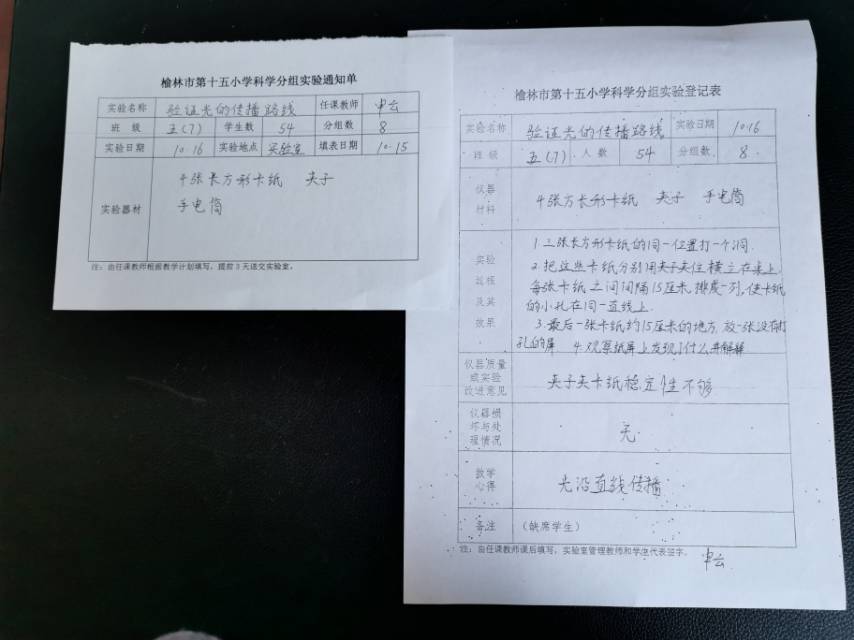 榆林市第十五小学科学分组实验通知单
实验名称 验证光的传播路线 任课教师 申云
班 级 五(7) 学生数 54 分组数 8
实验日期 10.16 实验地点 实验室 填表日期 10.15
实验器材
4张长方形卡纸 夹子
手电筒
注：由任课教师根据教学计划填写，提前3天送交实验室。
榆林市第十五小学科学分组实验登记表
实验名称 验证光的传播路线 实验日期 10.16
班 级 五(7) 人 数 54 分组数 8.
仪器
材料
4张方长形卡纸 夹子 手电筒
实验
过程
及其
效果
1.三张长方形卡纸的同一位置打一个洞.
2.把这些卡纸分别用夹子夹住横立在桌上
每张卡纸之间间隔15厘米.排成一列,使卡纸
的小孔在同一直线上.
3.最后一张卡纸约15厘米的地方.放一张没有打
孔的屏 4.观察纸屏上发现了什么并解释
仪器质量
或实验
改进意见
夹子夹卡纸稳定性不够
仪器损
坏与处
理情况
无.
教学
心得
光沿直线传播
备注 （缺席学生）
注：由任课教师课后填写，实验室管理教师和学生代表签字。
申云